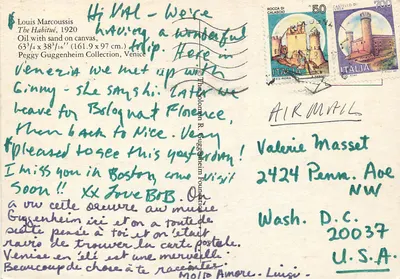 Louis Marcoussis
The Habitué, 1920
Oil with sand on canvas,
63¾ x 38³⁄₁₆" (161.9 x 97 cm.)
Peggy Guggenheim Collection, Venice
Hi VAL - We're
having a wonderful
trip. Here in
Venezia we met up with
Ginny - she says hi. Later we
leave for Bologna & Florence,
then back to Nice. Very
pleased to see this yesterday!
I miss you in Boston come visit
Soon!! xx Love BoB. On
a vu cette oeuvre au musée
Guggenheim ici et on a toute de
suite pensé à toi et on était
ravis de trouver la carte postale.
Venise en été est une merveille
Beaucoup de choses à te raconter.
Molto Amore - Luigi
The Solomon R. Guggenheim Foundation
ROCCA DI
CALASCIO
50
ITALIA
ITALIA
AIR MAIL
Valerie Masset
2424 Penn. Ave
NW
Wash. D.C.
20037
U.S.A.